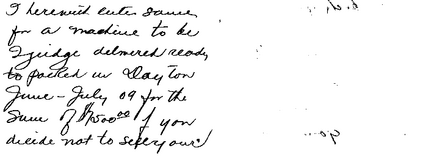 I herewith enter same
for a machine to be
I judge delivered ready
to packed in Dayton
June - July 09 for the
Sum of $7500⁰⁰ if you
decide not to sell yours